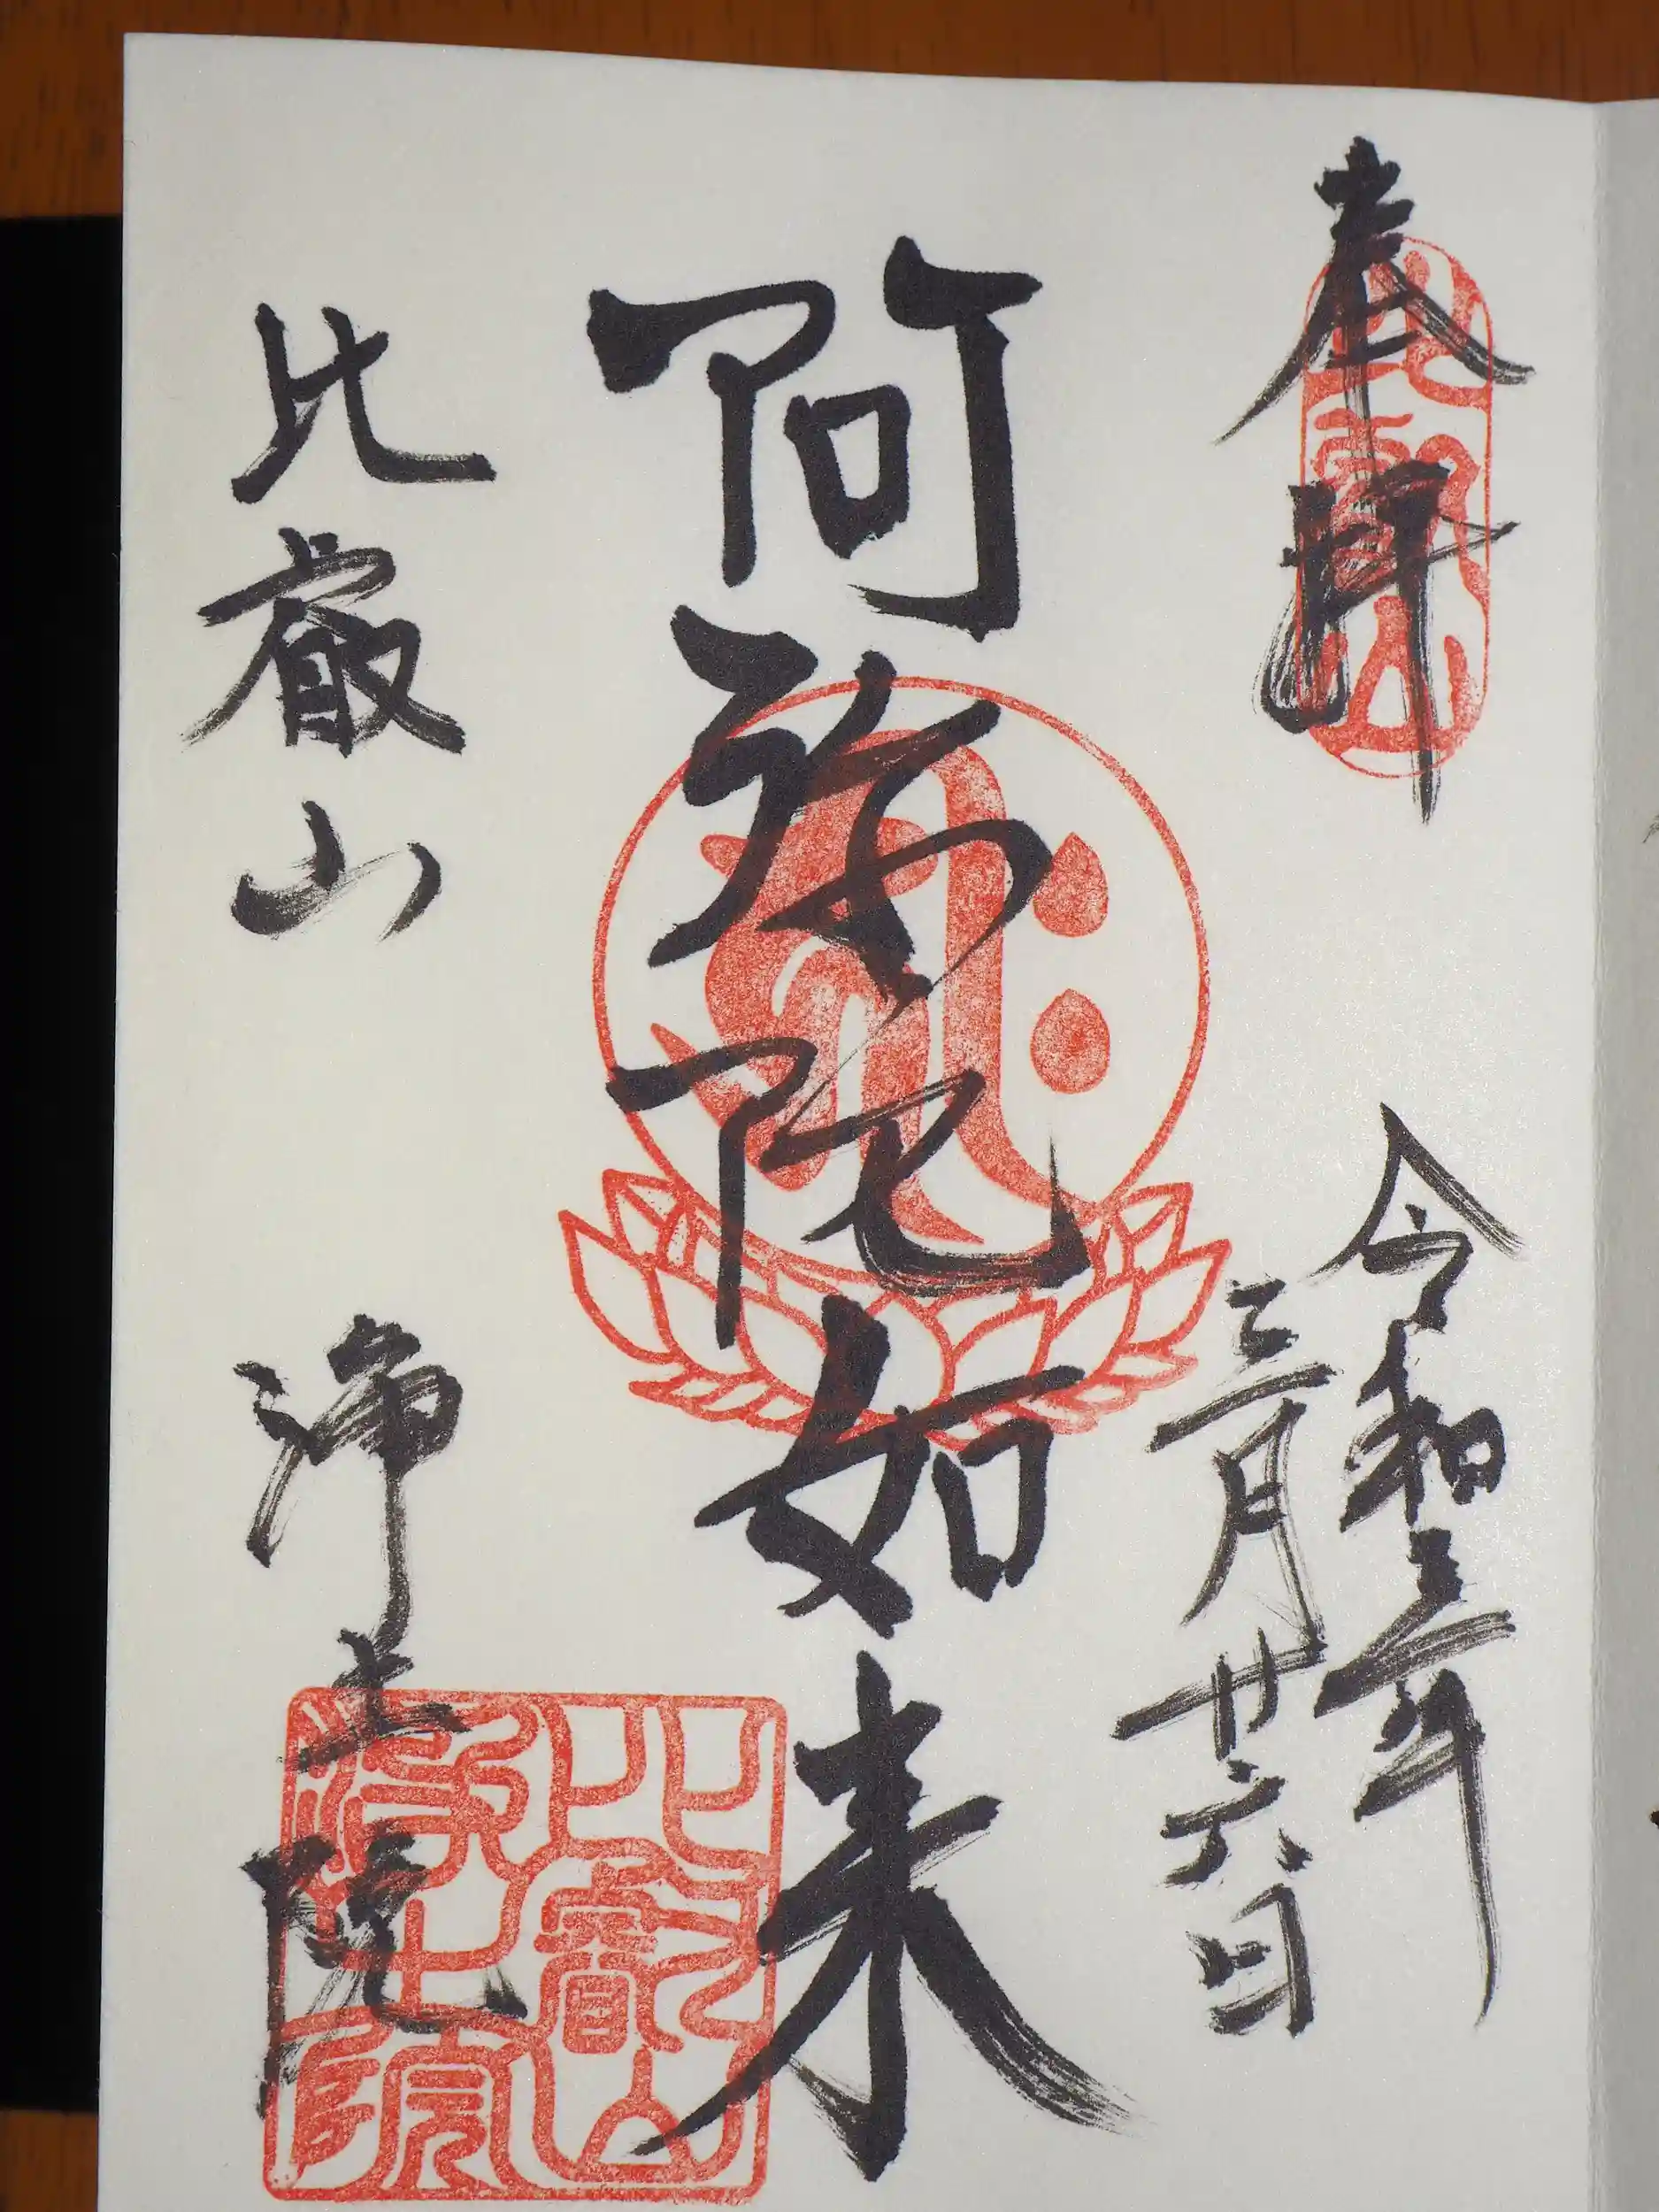 奉拝
比叡山
令和三年
三月廿六日
阿弥陀如来
ह्रीः
比叡山 浄土院
比叡山
浄土院